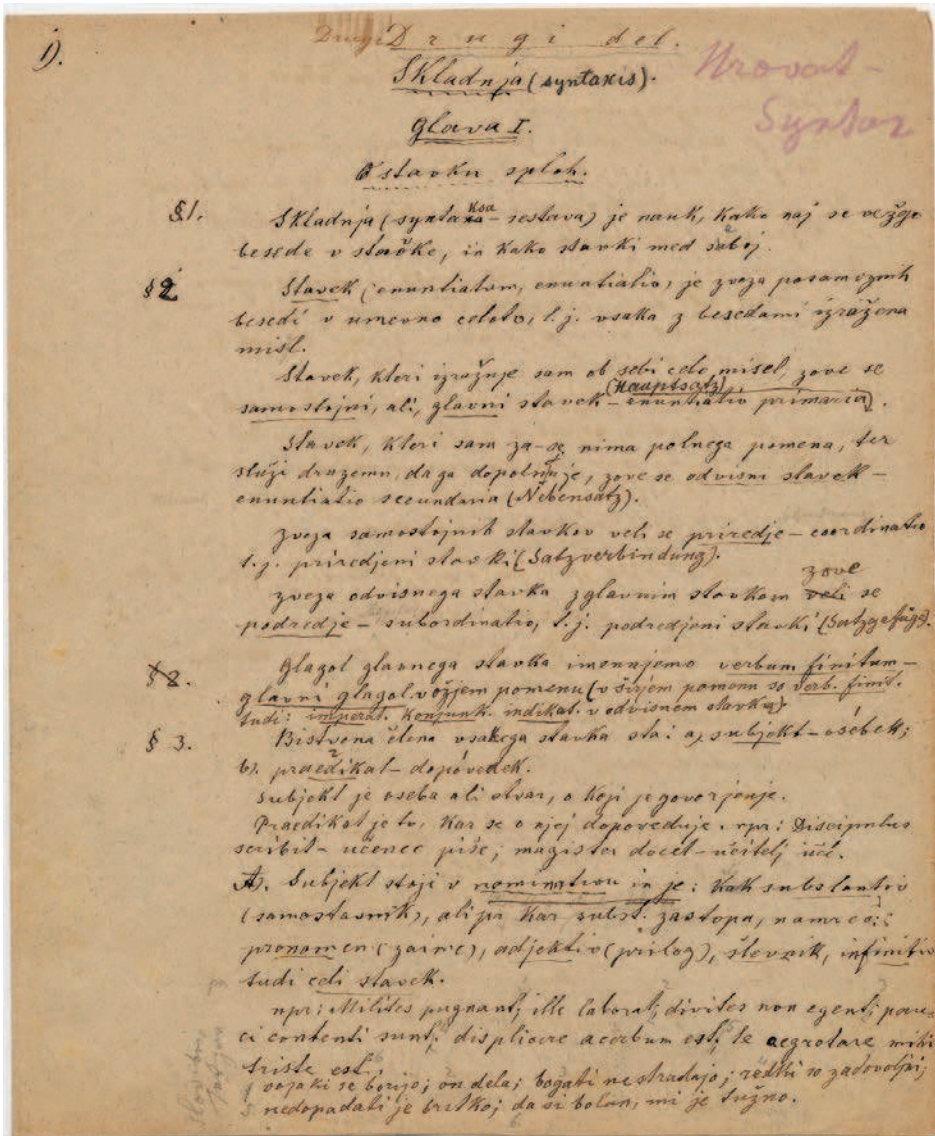 1).
Drugi Drugi del.
Skladnja (syntaxis).
Hrovat-
Syntax
Glava I.
O stavku sploh.
§1. Skladnja (syntaxa ksa - sestava) je nauk, kako naj se vežejo
besede v stavke, in kako stavki med saboj.
§2 Stavek (enuntiatum, enuntiatio, je zveza posameznih
besedi v umevno celoto, t.j. vsaka z besedami izražena
misl.
Stavek, kteri izražuje sam ob sebi celo misel, zove se
samostojni, ali, glavni stavek (Hauptsatz) - enuntiatio primaria).
Stavek, kteri sam za-se nima polnega pomena, ter
služi druzemu, da ga dopolnuje, zove se odvisni stavek -
enuntiatio secundaria (Nebensatz).
Zveza samostojnih stavkov veli se priredje - coordinatio
t.j. priredjeni stavki (Satzverbindung).
zove
Zveza odvisnega stavka z glavnim stavkom veli se
podredje - subordinatio, t.j. podredjeni stavki (Satzgefüge).
§2. Glagol glavnega stavka imenujemo verbum finitum -
glavni glagol v ožjem pomenu (v širjem pomenu so verb. finit.
tudi: imperat. konjunk. indikat. v odvisnem stavku)
§3. Bistvena člena vsakega stavka sta: a) subjekt - osébek;
b). praedikat - dopóvedek.
Subjekt je oseba ali stvar, o koji je govorjenje.
Praedikat je to, kar se o njej dopoveduje. npr: Discipulus
scribit - učenec piše; magister docet - učitelj uči.
A). Subjekt stoji v nominativu in je: kak substantiv
(samostavnik), ali pa kar subst. zastopa, namreč:
pronomen (zaime), adjektiv (prilog), števnik, infinitiv
tudi celi stavek.
npr: Milites pugnant; ille laborat; divites non egent; pau-
ci contenti sunt; displicere acerbum est; te aegrotare mihi
triste est.
vojaki se borijo; on dela; bogati ne stradajo; redki so zadovoljni;
nedopadati je britko; da si bolan, mi je tužno.